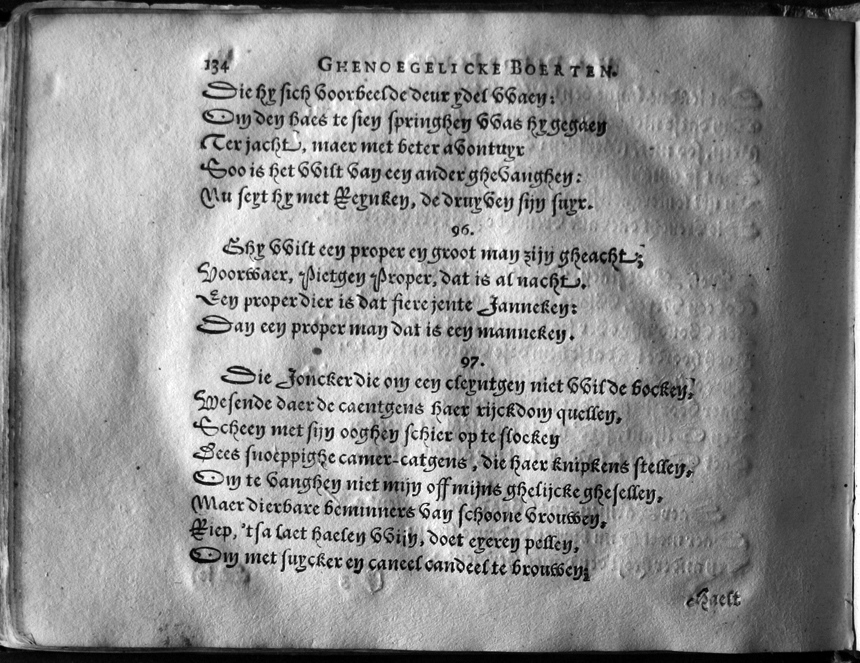 134 GHENOEGELICKE BOERTEN.
Die hy sich voorbeelde deur ydel VVaen:
Om den haes te sien springhen VVas hy gegaen
Ter jacht, maer met beter avontuyr
Soo is het VVilt van een ander ghevanghen:
Nu seyt hy met Reynken, de druyven sijn suyr.
96.
Ghy VVilt een proper en groot man zijn gheacht;
Voorwaer, Pietgen Proper, dat is al nacht.
Een proper dier is dat fiere jente Janneken:
Dan een proper man dat is een manneken.
97.
Die Joncker die om een cleyntgen niet VVilde bocken,
Wesende daer de caentgens haer rijckdom quellen,
Scheen met sijn ooghen schier op te slocken
Dees snoeppighe camer-catgens, die haer knipkens stellen,
Om te vanghen niet mijn off mijns ghelijcke ghesellen,
Maer dierbare beminners van schoone vrouwen,
Riep, 'tsa laet haelen VVijn, doet eyeren pellen,
Om met suycker en caneel candeel te brouwen;
Haelt